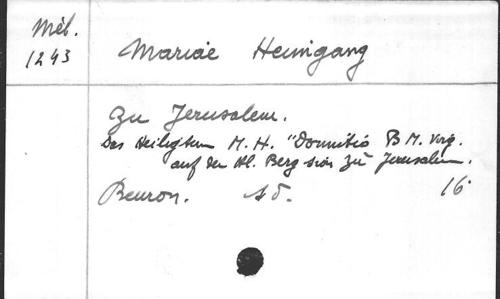 Mél.
1243
Mariae Heimgang
Zu Jerusalem.
Das Heiligtum M. H. "Dormitio B M. Virg.
auf der Hl. Berg Sion zu Jerusalem.
Beuron. s d. 16